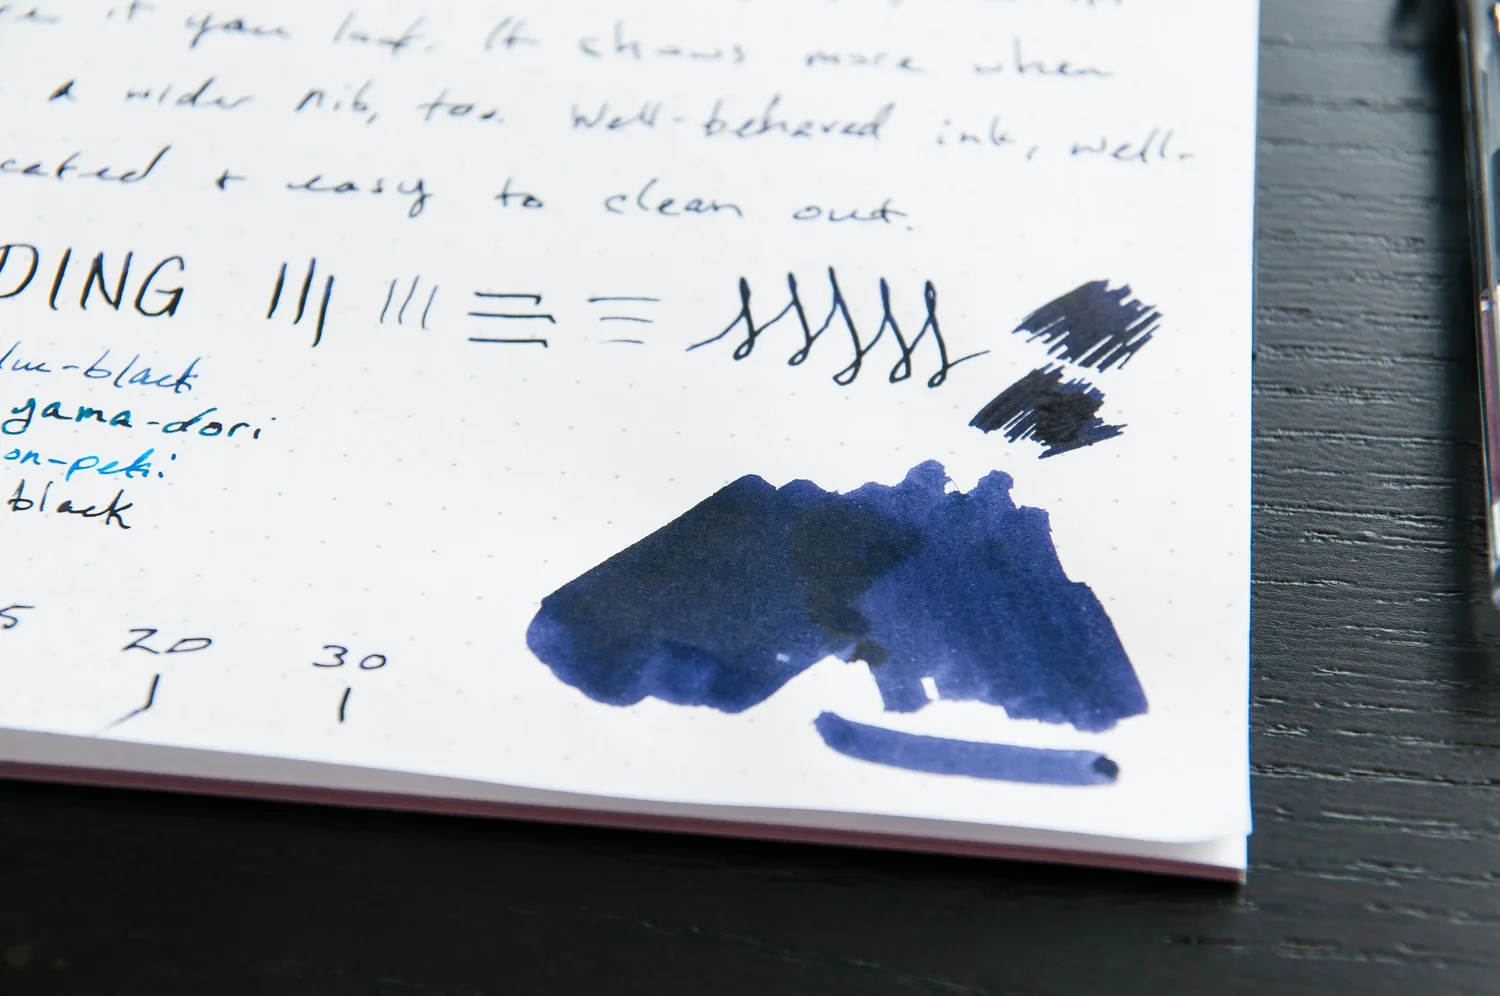 it you look. It shows more when
a wider nib, too. Well-behaved ink, well-
cated + easy to clean out.
DING
lue-black
yama-dori
on-peki
black
5 20 30